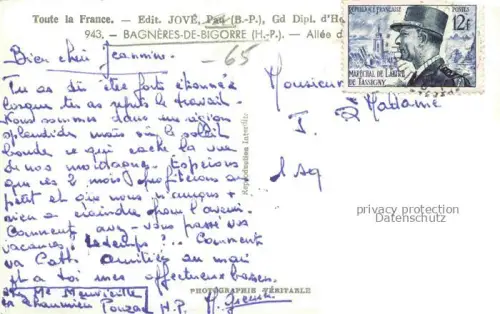 Toute la France. - Edit. JOVÉ, Pau (B.-P.), Gd Dipl. d'H
943. - BAGNÈRES-DE-BIGORRE (H.-P.). - Allée d
-65
RÉPUBLIQUE FRANÇAISE POSTES
12F
MARÉCHAL DE LATTRE
DE TASSIGNY
Bien chère Jeannine.
Tu as dû être forte étonnée
lorsque tu as repris le travail.
Nous sommes dans une région
splendide mais le soleil
boude ce qui cache la vue
de nos montagnes. Espérons
que ces 2 mois profiterons au
petit et que nous n'aurons +
rien a craindre pour l'avenir.
Comment avez-vous passé vos
vacances, le temps?... Comment
va Cathi amitiés au
et a toi mes affectueux baisers.
Monsieur
& Madame
J.
Reproduction Interdite
privacy protection
Datenschutz
PHOTOGRAPHIE VÉRITABLE
Pouzac H.P.